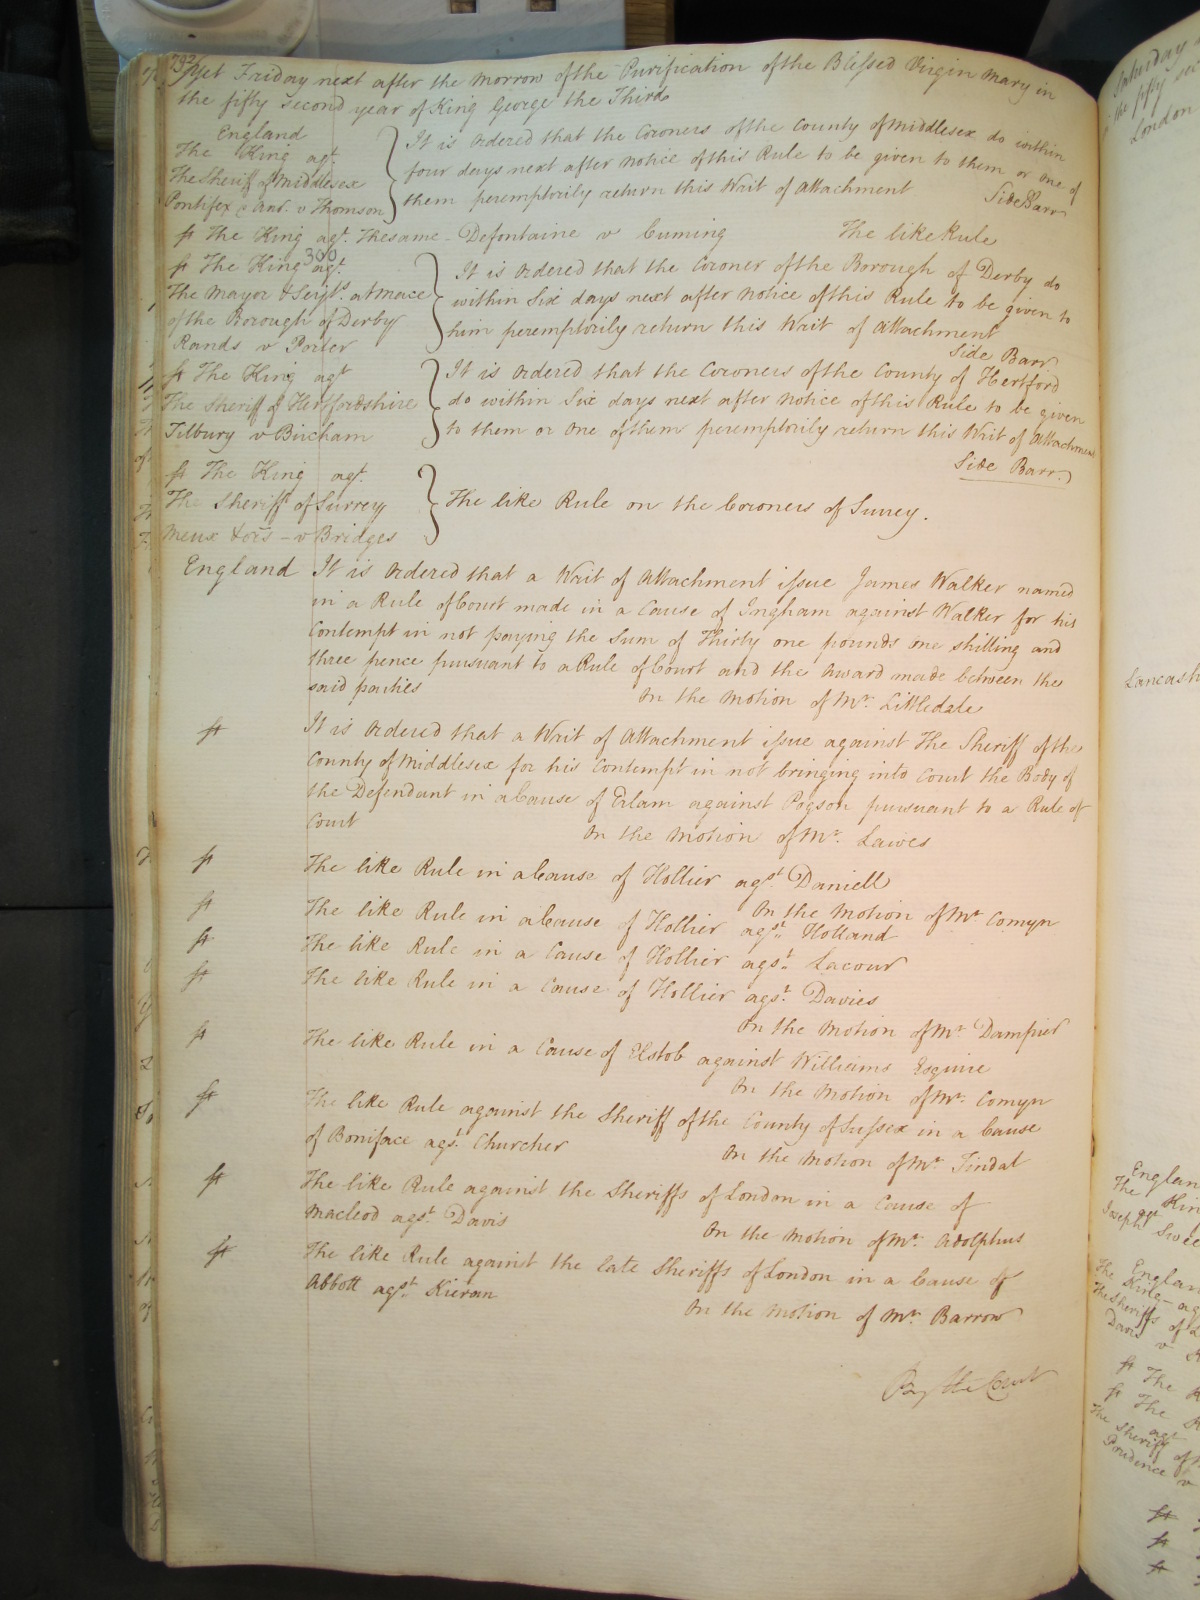 792
Yet Friday next after the morrow of the Purification of the Blessed Virgin Mary in
the fifty second year of King George the Third
England
The King agt.
The Sheriff of Middlesex
Pontifex & anr. v Thomson
It is Ordered that the Coroners of the County of Middlesex do within
four days next after notice of this Rule to be given to them or one of
them peremptorily return this Writ of Attachment
Side Barr
The King agt. The same - Defontaine v Cuming The like Rule
300
The King agt.
The Mayor & Serjts. at Mace
of the Borough of Derby
Rands v Porter
It is Ordered that the Coroner of the Borough of Derby do
within Six days next after Notice of this Rule to be given to
him peremptorily return this Writ of Attachment
Side Barr
The King agt
The Sheriff of Hertfordshire
Tilbury v Bircham
It is Ordered that the Coroners of the County of Hertford
do within Six days next after Notice of this Rule to be given
to them or one of them peremptorily return this Writ of Attachment
Side Barr
The King agt.
The Sheriff of Surrey
Meux & ors - v Bridges
The like Rule on the Coroners of Surrey.
England It is Ordered that a Writ of Attachment issue James Walker named
in a Rule of Court made in a Cause of Ingham against Walker for his
Contempt in not paying the Sum of Thirty one pounds one shilling and
three pence pursuant to a Rule of Court and the Award made between the
said parties On the Motion of Mr. Littledale
It is Ordered that a Writ of Attachment issue against The Sheriff of the
County of Middlesex for his Contempt in not bringing into Court the Body of
the Defendant in a Cause of Erlam against Pogson pursuant to a Rule of
Court On the Motion of Mr. Lawes
The like Rule in a Cause of Hollier agst. Daniell
On the Motion of Mr Comyn
The like Rule in a Cause of Hollier agst. Holland
The like Rule in a Cause of Hollier agst. Lacour
The like Rule in a Cause of Hollier agst. Davies
On the Motion of Mr Dampier
The like Rule in a Cause of against Williams Esquire
On the Motion of Mr. Comyn
The like Rule against the Sheriff of the County of Sussex in a Cause
of Boniface agst. Churcher On the Motion of Mr Tindal
The like Rule against the Sheriffs of London in a Cause of
Macleod agst. Davis On the Motion of Mr. Adolphus
The like Rule against the late Sheriffs of London in a Cause of
Abbott agst. Kieran
On the Motion of Mr. Barrow
By the Court
Saturday
the fifty
London
Lancash
England
The Kin
Joseph Swee
England
The King - ag
The Sheriffs of L
Davis v
The K
The K
agt
The Sheriff of
Prudence v